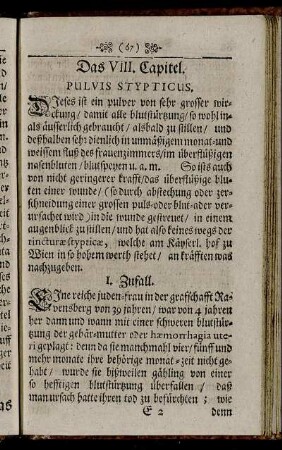 (67)
Das VIII. Capitel.
PULVIS STYPTICUS.
Dieses ist ein pulver von sehr grosser wir-
ckung / damit alle blutstürtzung / so wohl in-
als äusserlich gebraucht / alsbald zu stillen / und
deßhalben sehr dienlich in unmäßigem monat- und
weissem fluß des frauenzimmers / im überflüßigen
nasenbluten / blutspeyen u. a. m. So ists auch
von nicht geringerer krafft / das überflüßige blu-
ten einer wunde / (so durch abstechung oder zer-
schneidung einer grossen puls- oder blut-ader ver-
ursachet wird) in die wunde gestreuet / in einem
augenblick zu stillen / und hat also keines wegs der
tincturæ stypticæ, welche am Käyserl. hof zu
Wien in so hohem werth stehet / an kräfften was
nachzugeben.
I. Zufall.
Eine reiche juden-frau in der grafschafft Ra-
vensberg von 39 jahren / war von 4 jahren
her dann und wann mit einer schweren blutstür-
tzung der gebär-mutter oder hæmorrhagia ute-
ri geplagt: denn da sie manchmahl vier / fünff und
mehr monate ihre behörige monat-zeit nicht ge-
habt / wurde sie bißweilen gähling von einer
so hefftigen blutstürtzung überfallen / daß
man ursach hatte ihren tod zu befürchten; wie
E 2 denn